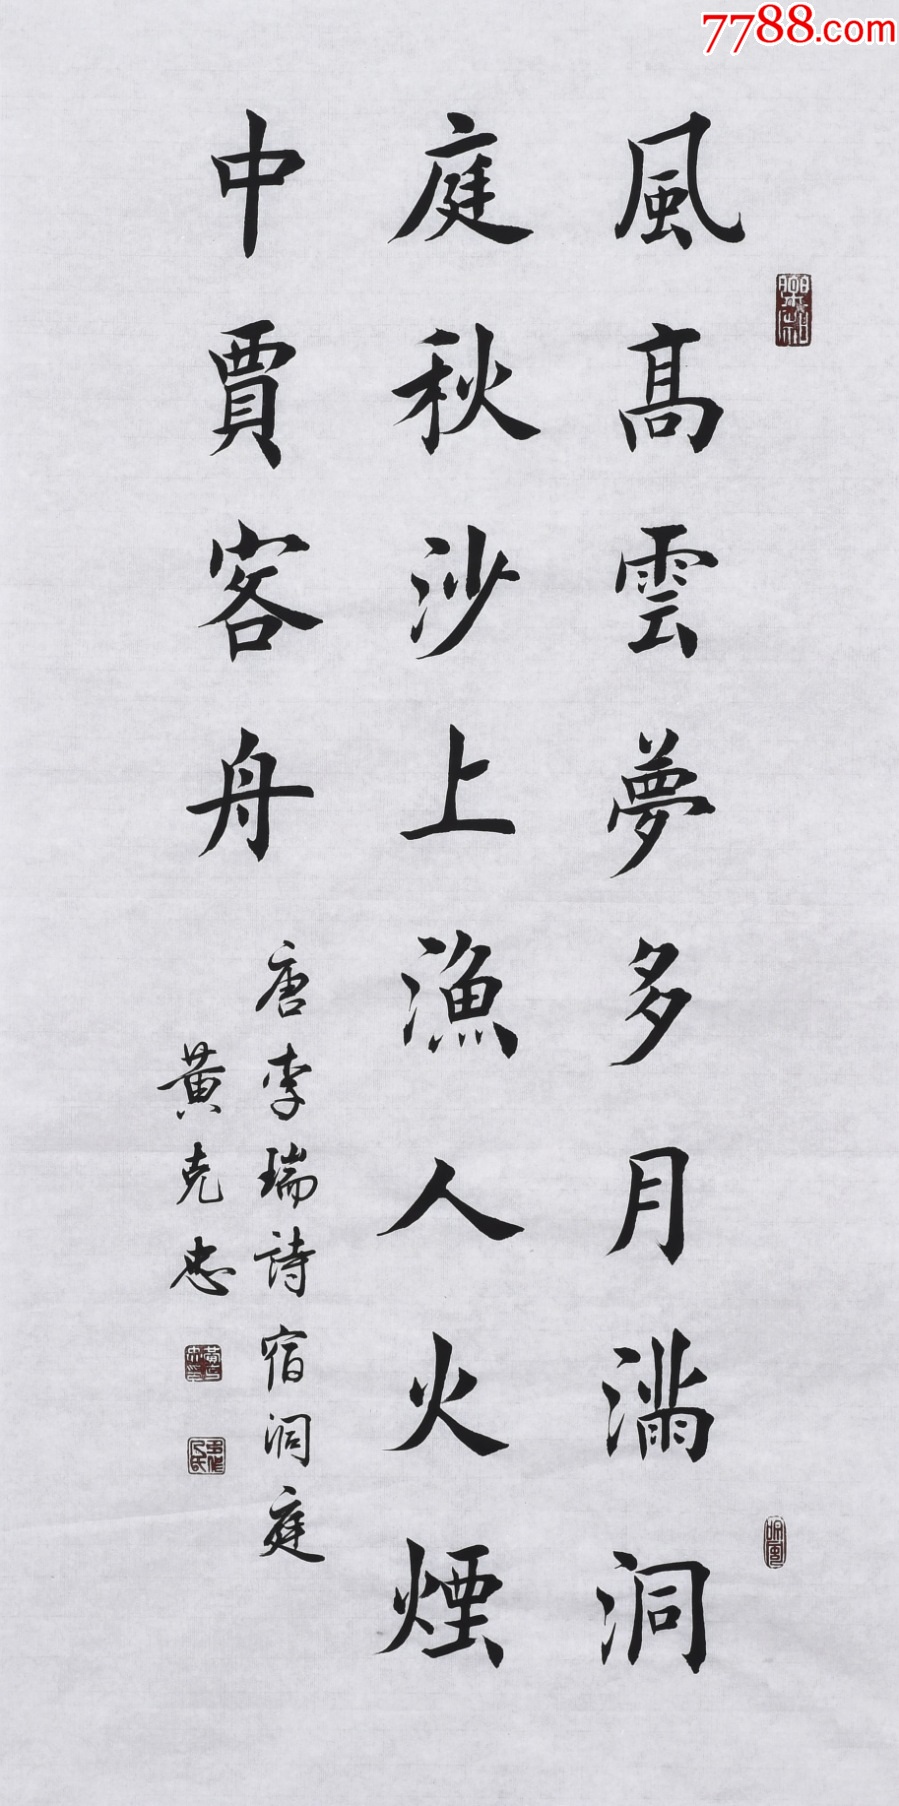 7788.com
風高雲夢多月滿洞
庭秋沙上漁人火煙
中賈客舟
唐李瑞詩宿洞庭
黄克忠